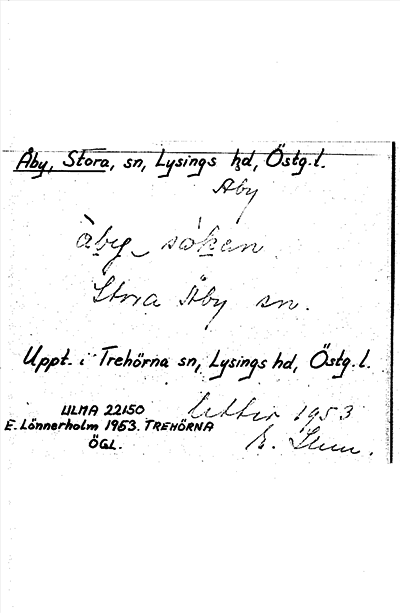 Åby, Stora, sn, Lysings hd, Östg.l.
Åby
åby- sóken
Stora Åby sn.
Uppt. i Trehörna sn, Lysings hd, Östg.l.
ULMA 22150
E. Lönnerholm 1953. TREHÖRNA
ÖGL.
1953
E.